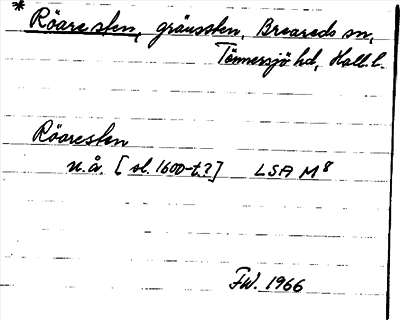 * Röaresten, gränssten, Breareds sn,
Tönnersjö hd, Hall. l.
Röaresten
u.å. [sl. 1600-t.?] LSA M⁸
FW. 1966